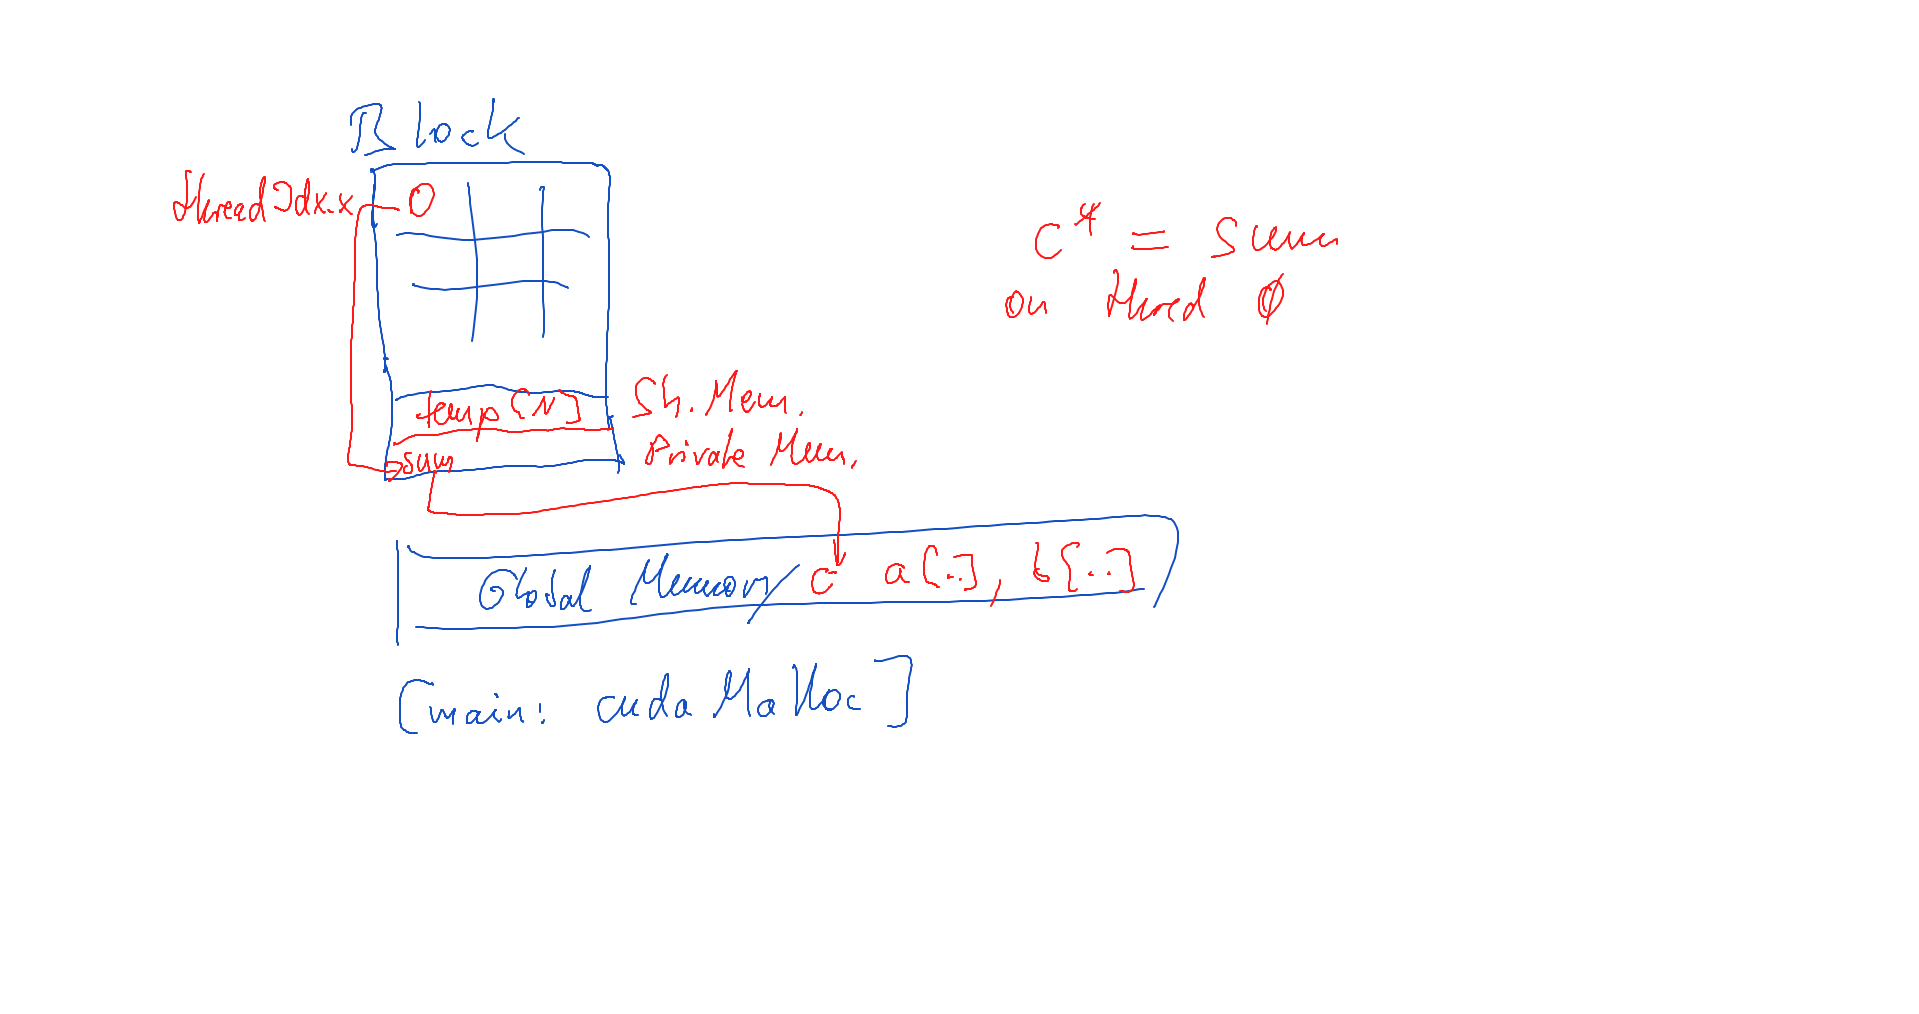 Block
threadIdx.x 0
c* = sum
on thred 0
temp[N] Sh. Mem.
sum Private Mem.
Global Memory c a[..], b[..]
[main: cudaMalloc]